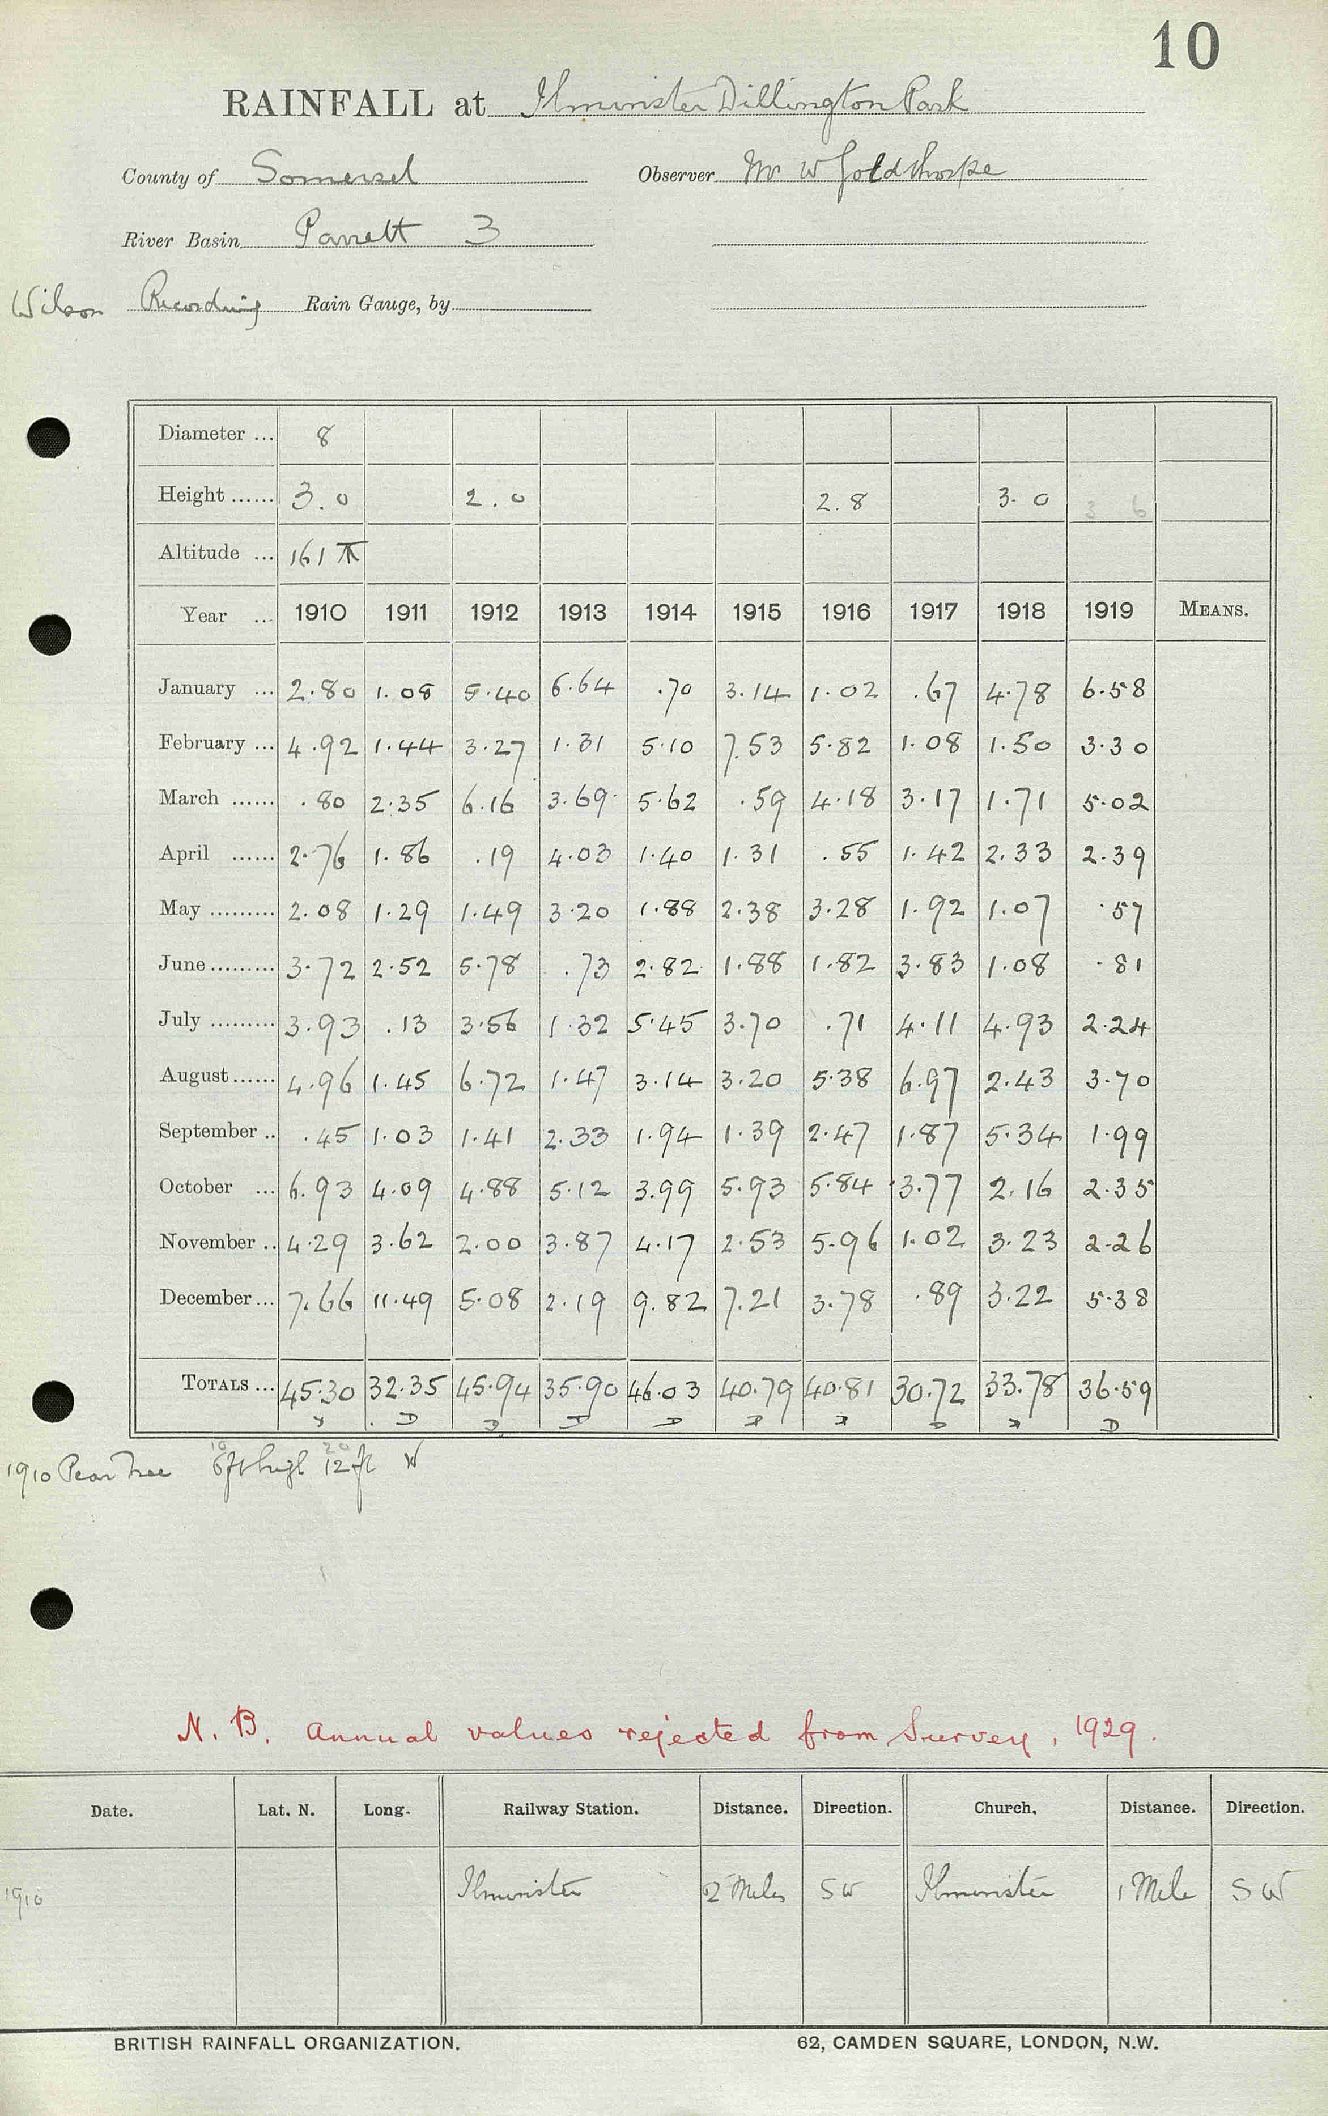 10
RAINFALL at Ilminster Dillington Park
County of Somerset Observer Mr W Goldthorpe
River Basin Parrett 3
Wilson Recording Rain Gauge, by
Diameter ... 8
Height ...... 3.0 2.0 2.8 3.0 3 6
Altitude ... 161
Year ... 1910 1911 1912 1913 1914 1915 1916 1917 1918 1919 MEANS.
January ... 2.80 1.08 5.40 6.64 .70 3.14 1.02 .67 4.78 6.58
February ... 4.92 1.44 3.27 1.31 5.10 7.53 5.82 1.08 1.50 3.30
March ...... .80 2.35 6.16 3.69 5.62 .59 4.18 3.17 1.71 5.02
April ...... 2.76 1.86 .19 4.03 1.40 1.31 .55 1.42 2.33 2.39
May ......... 2.08 1.29 1.49 3.20 1.88 2.38 3.28 1.92 1.07 .57
June ......... 3.72 2.52 5.78 .73 2.82 1.88 1.82 3.83 1.08 .81
July ......... 3.93 .13 3.56 1.32 5.45 3.70 .71 4.11 4.93 2.24
August ...... 4.96 1.45 6.72 1.47 3.14 3.20 5.38 6.97 2.43 3.70
September .. .45 1.03 1.41 2.33 1.94 1.39 2.47 1.87 5.34 1.99
October ... 6.93 4.09 4.88 5.12 3.99 5.93 5.84 3.77 2.16 2.35
November .. 4.29 3.62 2.00 3.87 4.17 2.53 5.96 1.02 3.23 2.26
December ... 7.66 11.49 5.08 2.19 9.82 7.21 3.78 .89 3.22 5.38
TOTALS ... 45.30 32.35 45.94 35.90 46.03 40.79 40.81 30.72 33.78 36.59
D D D D D D D D D D
1910 Pear Tree 6ft high 12 ft W
N.B. Annual values rejected from Survey, 1929.
Date. Lat. N. Long. Railway Station. Distance. Direction. Church. Distance. Direction.
1910 Ilminster 2 Miles SW Ilminster 1 Mile SW
BRITISH RAINFALL ORGANIZATION. 62, CAMDEN SQUARE, LONDON, N.W.